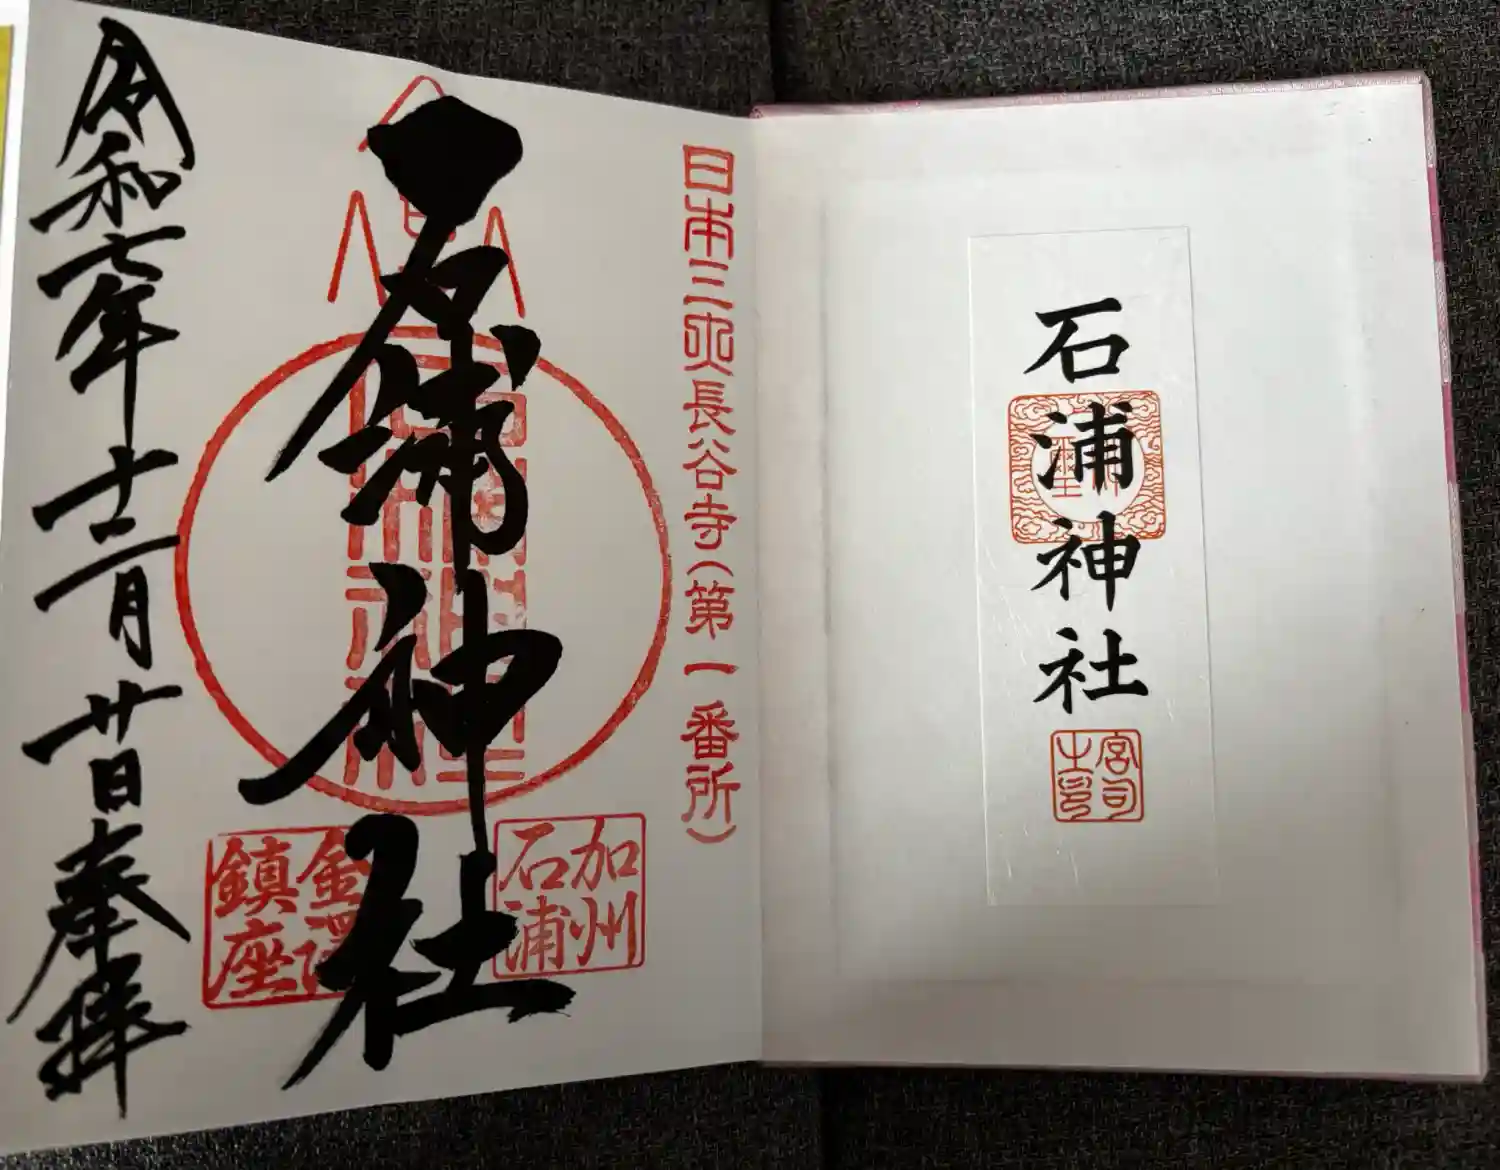 石浦神社
宮司
之印
日本三央長谷寺(第一番所)
石浦神社
加州
石浦
金澤
鎮座
令和七年十二月廿日奉拝